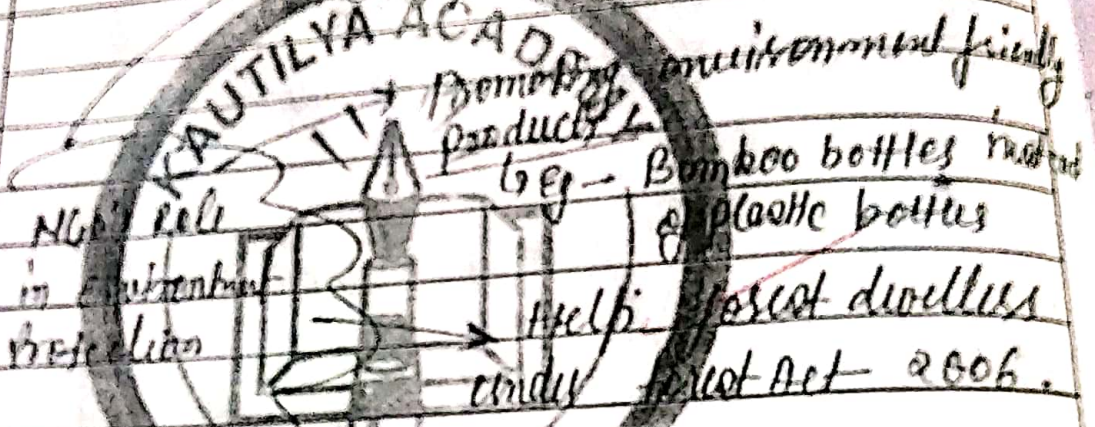 KAUTILYA ACADEMY
Promoting environment friendly
products
↳ Eg - Bamboo bottles instead
of plastic bottles
NGO's Role
in Environment
Protection
Help forest dwellers
under forest Act - 2006.